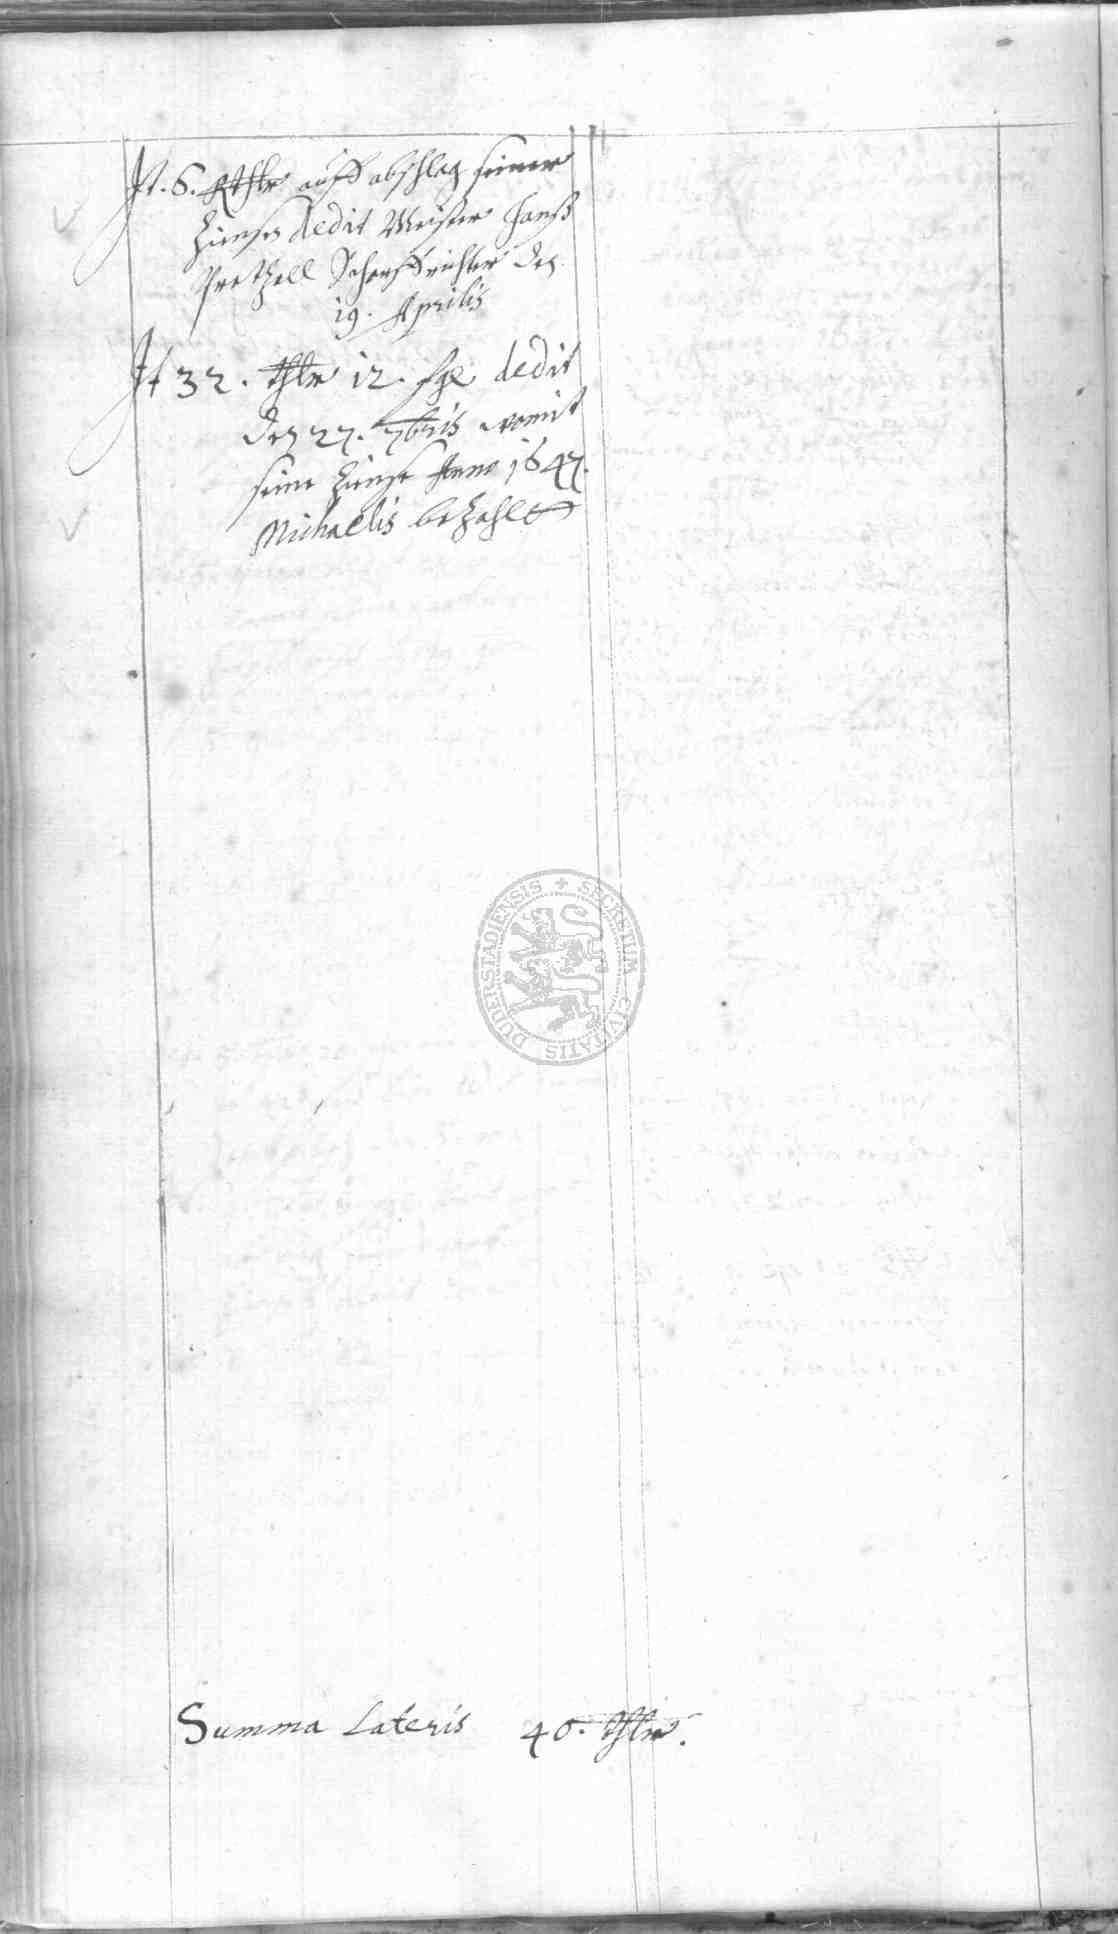 It. 6. Rthlr auff abschlag seiner
Zinsen dedit Meister Hanß
Prethell Scharffrichter den
19. Aprilis
It 32. thlr 12. sgl dedit
den 27. 7bris womit
seine Zinse Anno 1647.
Michaelis bezahlt
SECRETUM CIVITATIS DUDERSTADIENSIS
Summa Lateris 40. thlr.